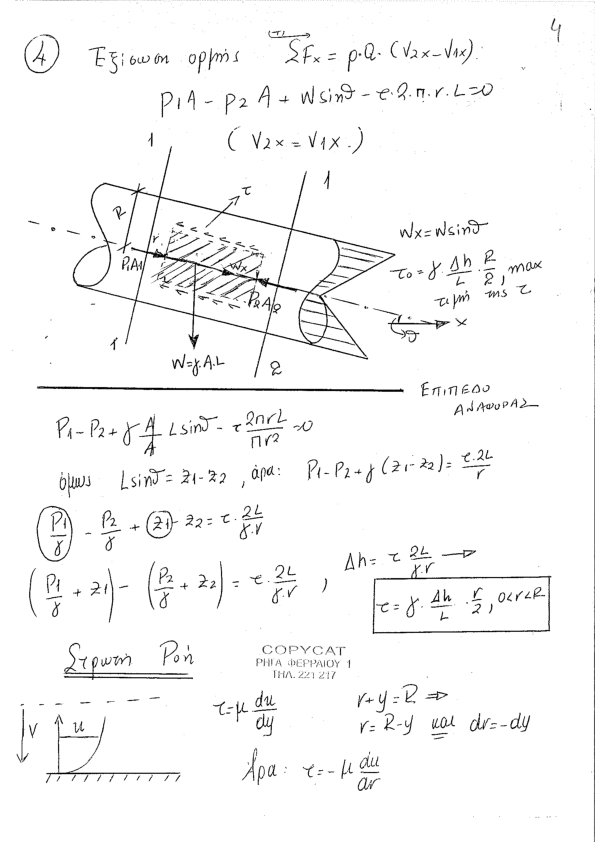 4
④ Εξίσωση ορμής (+) ΣFx = ρ·Q·(V2x-V1x)
P1A - P2A + Wsinϑ - τ·2·π·r·L=0
(V2x = V1x.)
1
1
τ
R
r
P1A1
Wx
P2A2
Wx=Wsinϑ
τ₀=γ·Δh/L·R/2, max
τιμή της τ
ϑ
x
1
W=γ.A.L
2
ΕΠΙΠΕΔΟ
ΑΝΑΦΟΡΑΣ
P1-P2+γ A/A Lsinϑ-τ 2πrL/πr² =0
όμως Lsinϑ=z1-z2, άρα: P1-P2+γ(z1-z2)= τ·2L/r
P1/γ - P2/γ + z1-z2=τ·2L/γ·r
(P1/γ + z1) - (P2/γ + z2) = τ·2L/γ·r , Δh= τ 2L/γ·r →
τ=γ·Δh/L·r/2, 0<r<R
Στρωτή Ροή
COPYCAT
ΡΗΓΑ ΦΕΡΡΑΙΟΥ 1
ΤΗΛ. 221 217
V
u
τ=μ du/dy
r+y=R ⇒
r=R-y και dr=-dy
Άρα: τ=-μ du/dr